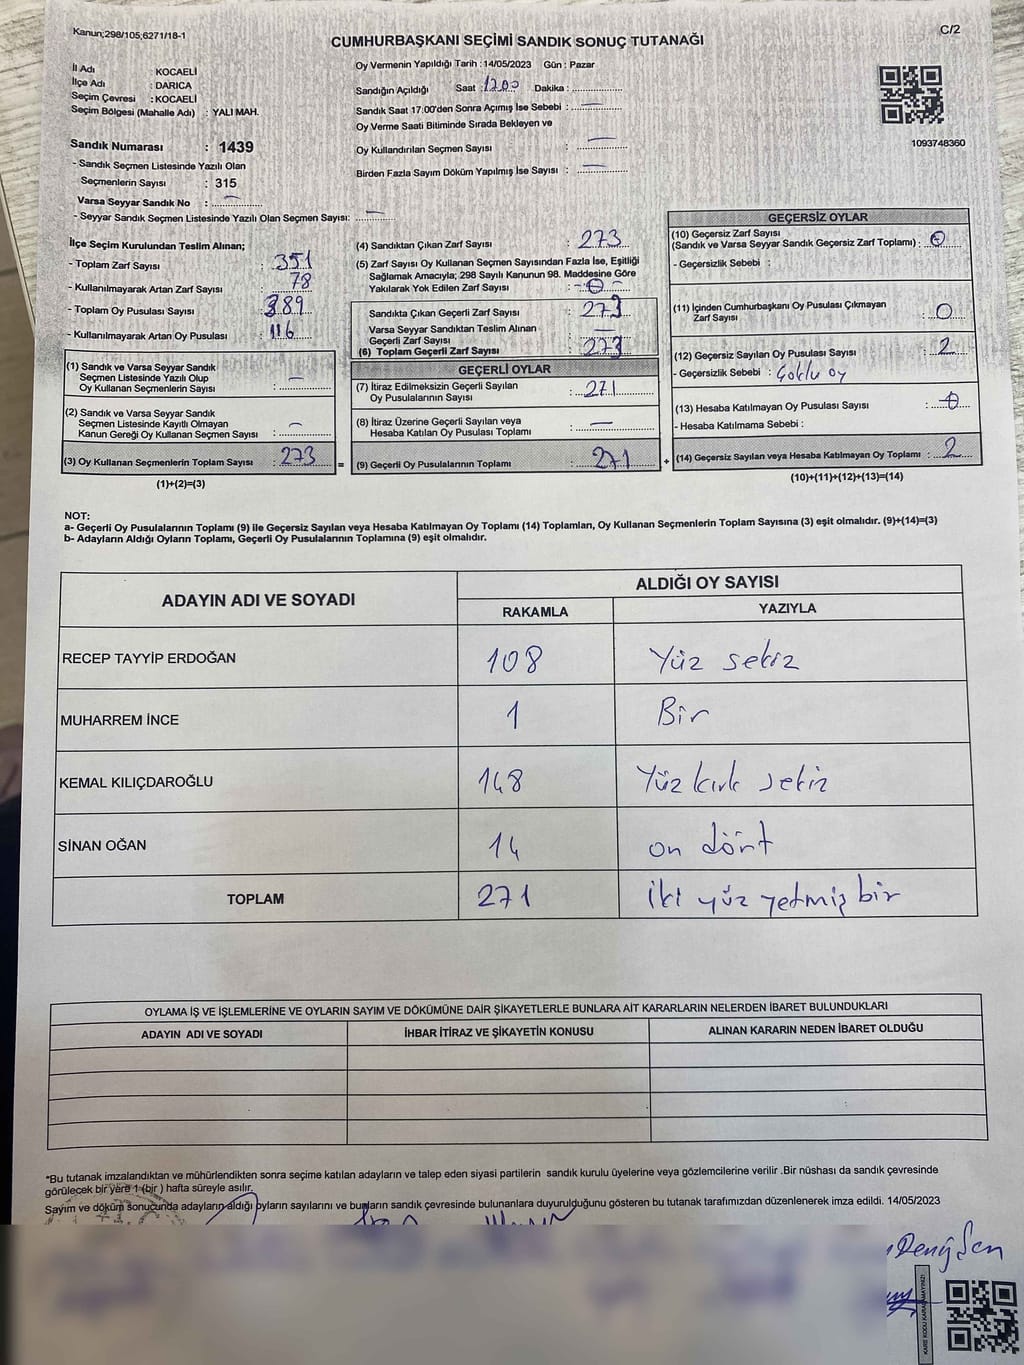 Kanun;298/105;6271/18-1
C/2
CUMHURBAŞKANI SEÇİMİ SANDIK SONUÇ TUTANAĞI
İl Adı : KOCAELİ
İlçe Adı : DARICA
Seçim Çevresi : KOCAELİ
Seçim Bölgesi (Mahalle Adı) : YALI MAH.
Sandık Numarası : 1439
- Sandık Seçmen Listesinde Yazılı Olan
Seçmenlerin Sayısı : 315
Varsa Seyyar Sandık No : —
- Seyyar Sandık Seçmen Listesinde Yazılı Olan Seçmen Sayısı: —
Oy Vermenin Yapıldığı Tarih : 14/05/2023 Gün : Pazar
Sandığın Açıldığı Saat : 1700 Dakika :
Sandık Saat 17.00'den Sonra Açımış İse Sebebi : —
Oy Verme Saati Bitiminde Sırada Bekleyen ve
Oy Kullandırılan Seçmen Sayısı : —
Birden Fazla Sayım Döküm Yapılmış İse Sayısı : —
1093748360
İlçe Seçim Kurulundan Teslim Alınan;
- Toplam Zarf Sayısı : 351
- Kullanılmayarak Artan Zarf Sayısı : 78
- Toplam Oy Pusulası Sayısı : 389
- Kullanılmayarak Artan Oy Pusulası : 116
(1) Sandık ve Varsa Seyyar Sandık
Seçmen Listesinde Yazılı Olup
Oy Kullanan Seçmenlerin Sayısı : —
(2) Sandık ve Varsa Seyyar Sandık
Seçmen Listesinde Kayıtlı Olmayan
Kanun Gereği Oy Kullanan Seçmen Sayısı : —
(3) Oy Kullanan Seçmenlerin Toplam Sayısı : 273 =
(1)+(2)=(3)
(4) Sandıktan Çıkan Zarf Sayısı : 273
(5) Zarf Sayısı Oy Kullanan Seçmen Sayısından Fazla İse, Eşitliği
Sağlamak Amacıyla; 298 Sayılı Kanunun 98. Maddesine Göre
Yakılarak Yok Edilen Zarf Sayısı : -0-
Sandıkta Çıkan Geçerli Zarf Sayısı : 273
Varsa Seyyar Sandıktan Teslim Alınan
Geçerli Zarf Sayısı : —
(6) Toplam Geçerli Zarf Sayısı : 273
GEÇERLİ OYLAR
(7) İtiraz Edilmeksizin Geçerli Sayılan
Oy Pusulalarının Sayısı : 271
(8) İtiraz Üzerine Geçerli Sayılan veya
Hesaba Katılan Oy Pusulası Toplamı : —
(9) Geçerli Oy Pusulalarının Toplamı : 271 +
GEÇERSİZ OYLAR
(10) Geçersiz Zarf Sayısı
(Sandık ve Varsa Seyyar Sandık Geçersiz Zarf Toplamı) : 0
- Geçersizlik Sebebi :
(11) İçinden Cumhurbaşkanı Oy Pusulası Çıkmayan
Zarf Sayısı : 0
(12) Geçersiz Sayılan Oy Pusulası Sayısı : 2
- Geçersizlik Sebebi : Çoklu oy
(13) Hesaba Katılmayan Oy Pusulası Sayısı : 0
- Hesaba Katılmama Sebebi :
(14) Geçersiz Sayılan veya Hesaba Katılmayan Oy Toplamı : 2
(10)+(11)+(12)+(13)=(14)
NOT:
a- Geçerli Oy Pusulalarının Toplamı (9) ile Geçersiz Sayılan veya Hesaba Katılmayan Oy Toplamı (14) Toplamları, Oy Kullanan Seçmenlerin Toplam Sayısına (3) eşit olmalıdır. (9)+(14)=(3)
b- Adayların Aldığı Oyların Toplamı, Geçerli Oy Pusulalarının Toplamına (9) eşit olmalıdır.
ADAYIN ADI VE SOYADI
ALDIĞI OY SAYISI
RAKAMLA YAZIYLA
RECEP TAYYİP ERDOĞAN 108 Yüz sekiz
MUHARREM İNCE 1 Bir
KEMAL KILIÇDAROĞLU 148 Yüz kırk sekiz
SİNAN OĞAN 14 on dört
TOPLAM 271 iki yüz yetmiş bir
OYLAMA İŞ VE İŞLEMLERİNE VE OYLARIN SAYIM VE DÖKÜMÜNE DAİR ŞİKAYETLERLE BUNLARA AİT KARARLARIN NELERDEN İBARET BULUNDUKLARI
ADAYIN ADI VE SOYADI İHBAR İTİRAZ VE ŞİKAYETİN KONUSU ALINAN KARARIN NEDEN İBARET OLDUĞU
*Bu tutanak imzalandıktan ve mühürlendikten sonra seçime katılan adayların ve talep eden siyasi partilerin sandık kurulu üyelerine veya gözlemcilerine verilir .Bir nüshası da sandık çevresinde
görülecek bir yere 1 (bir ) hafta süreyle asılır.
Sayım ve döküm sonucunda adayların aldığı oyların sayılarını ve bunların sandık çevresinde bulunanlara duyurulduğunu gösteren bu tutanak tarafımızdan düzenlenerek imza edildi. 14/05/2023
KARE KODU KARALAMAYINIZ!